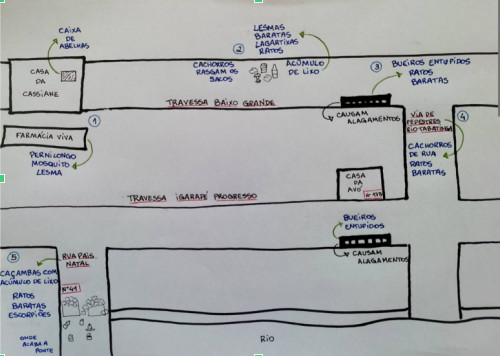 CAIXA
DE
ABELHAS
CASA
DA
CASSIANE
①
FARMÁCIA VIVA
PERNILONGO
MOSQUITO
LESMA
②
LESMAS
BARATAS
LAGARTIXAS
RATOS
CACHORROS
RASGAM OS
SACOS
ACÚMULO
DE LIXO
③
BUEIROS ENTUPIDOS
RATOS
BARATAS
TRAVESSA BAIXO GRANDE
CAUSAM
ALAGAMENTOS
VIA DE
PEDESTRES
RIO TABATINGA
④
CACHORROS
DE RUA
RATOS
BARATAS
CASA
DA
AVÓ
TRAVESSA IGARAPÉ PROGRESSO
BUEIROS
ENTUPIDOS
CAUSAM
ALAGAMENTOS
⑤
CAÇAMBAS COM
ACÚMULO DE LIXO
RATOS
BARATAS
ESCORPIÕES
ONDE
ACABA A
PONTE
RUA PAIS
NATAL
Nº41
RIO